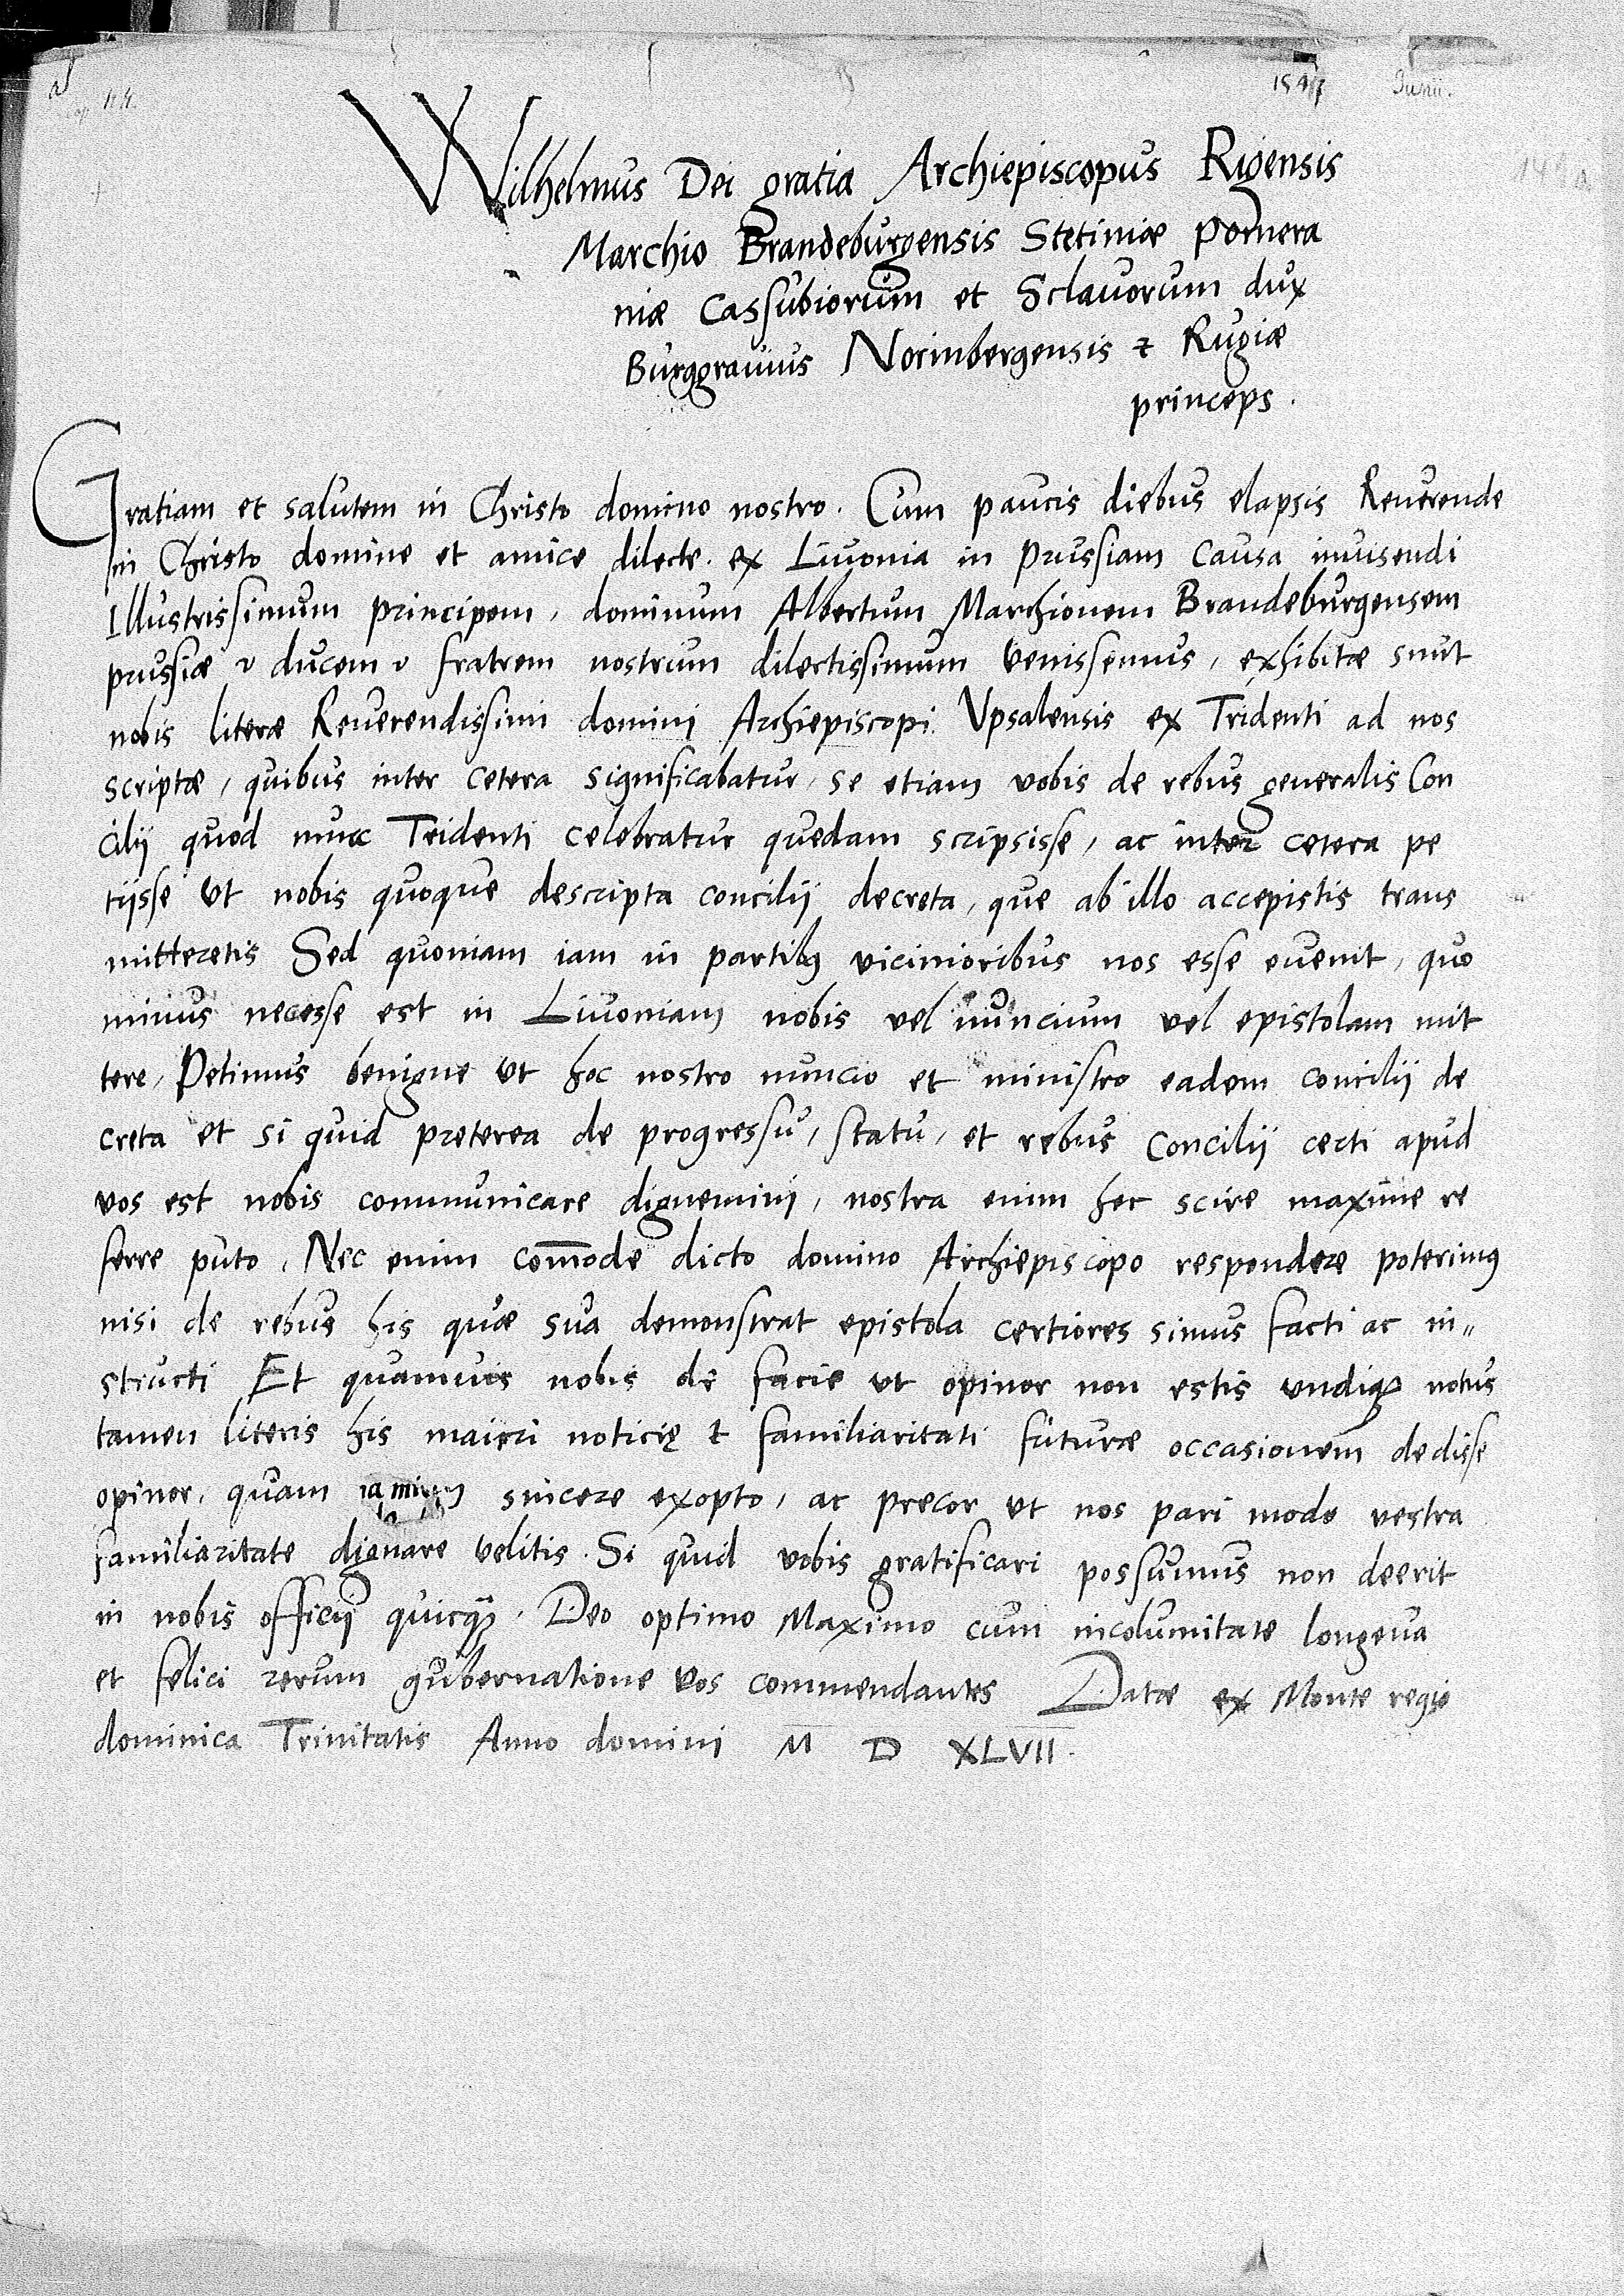 1547 Junii.
Wilhelmus Dei gratia Archiepiscopus Rigensis
Marchio Brandeburgensis Stetiniæ pomera
niæ Cassubiorum et Sclauorum dux
Burggrauius Norinbergensis & Rugiæ
princeps.
Gratiam et salutem in Christo domino nostro. Cum paucis diebus elapsis Reuerende
in Christo domine et amice dilecte. ex Liuonia in prussiam causa inuisendi
Illustrissimum principem, dominum Albertum Marchionem Brandeburgensem
prussiæ ducem fratrem nostrum dilectissimum venissemus, exhibitæ sunt
nobis literæ Reuerendissimi domini Archiepiscopi Vpsalensis ex Tridenti ad nos
scriptæ, quibus inter cetera significabatur, se etiam vobis de rebus generalis Con
cilij quod nunc Tridenti celebratur quedam scripsisse, ac inter cetera pe
tijsse vt nobis quoque descripta concilij decreta, que ab illo accepistis trans
mitteretis Sed quoniam iam in partibus vicinioribus nos esse euenit, quo
minus necesse est in Liuoniam nobis vel nuncium vel epistolam mit
tere, Petimus benigne vt hoc nostro nuncio et ministro eadem concilij de
creta et si quid preterea de progressu, statu, et rebus Concilij certi apud
vos est nobis communicare dignemini, nostra enim hec scire maxime re
ferre puto, Nec enim com̄ode dicto domino Archiepiscopo respondere poterimus
nisi de rebus his quæ sua demonstrat epistola certiores simus facti ac in„
structi Et quamuis nobis de facie vt opinor non estis vndiq notus
tamen literis his maiori noticię & familiaritati futuræ occasionem dedisse
opinor, quam sincere exopto, ac precor vt nos pari modo vestra
familiaritate dignare velitis. Si quid vobis gratificari possumus non deerit
in nobis officij quicq. Deo optimo Maximo cum incolumitate longeua
et felici rerum gubernatione vos commendantes Datæ ex Monte regio
dominica Trinitatis Anno domini M D XLVII.